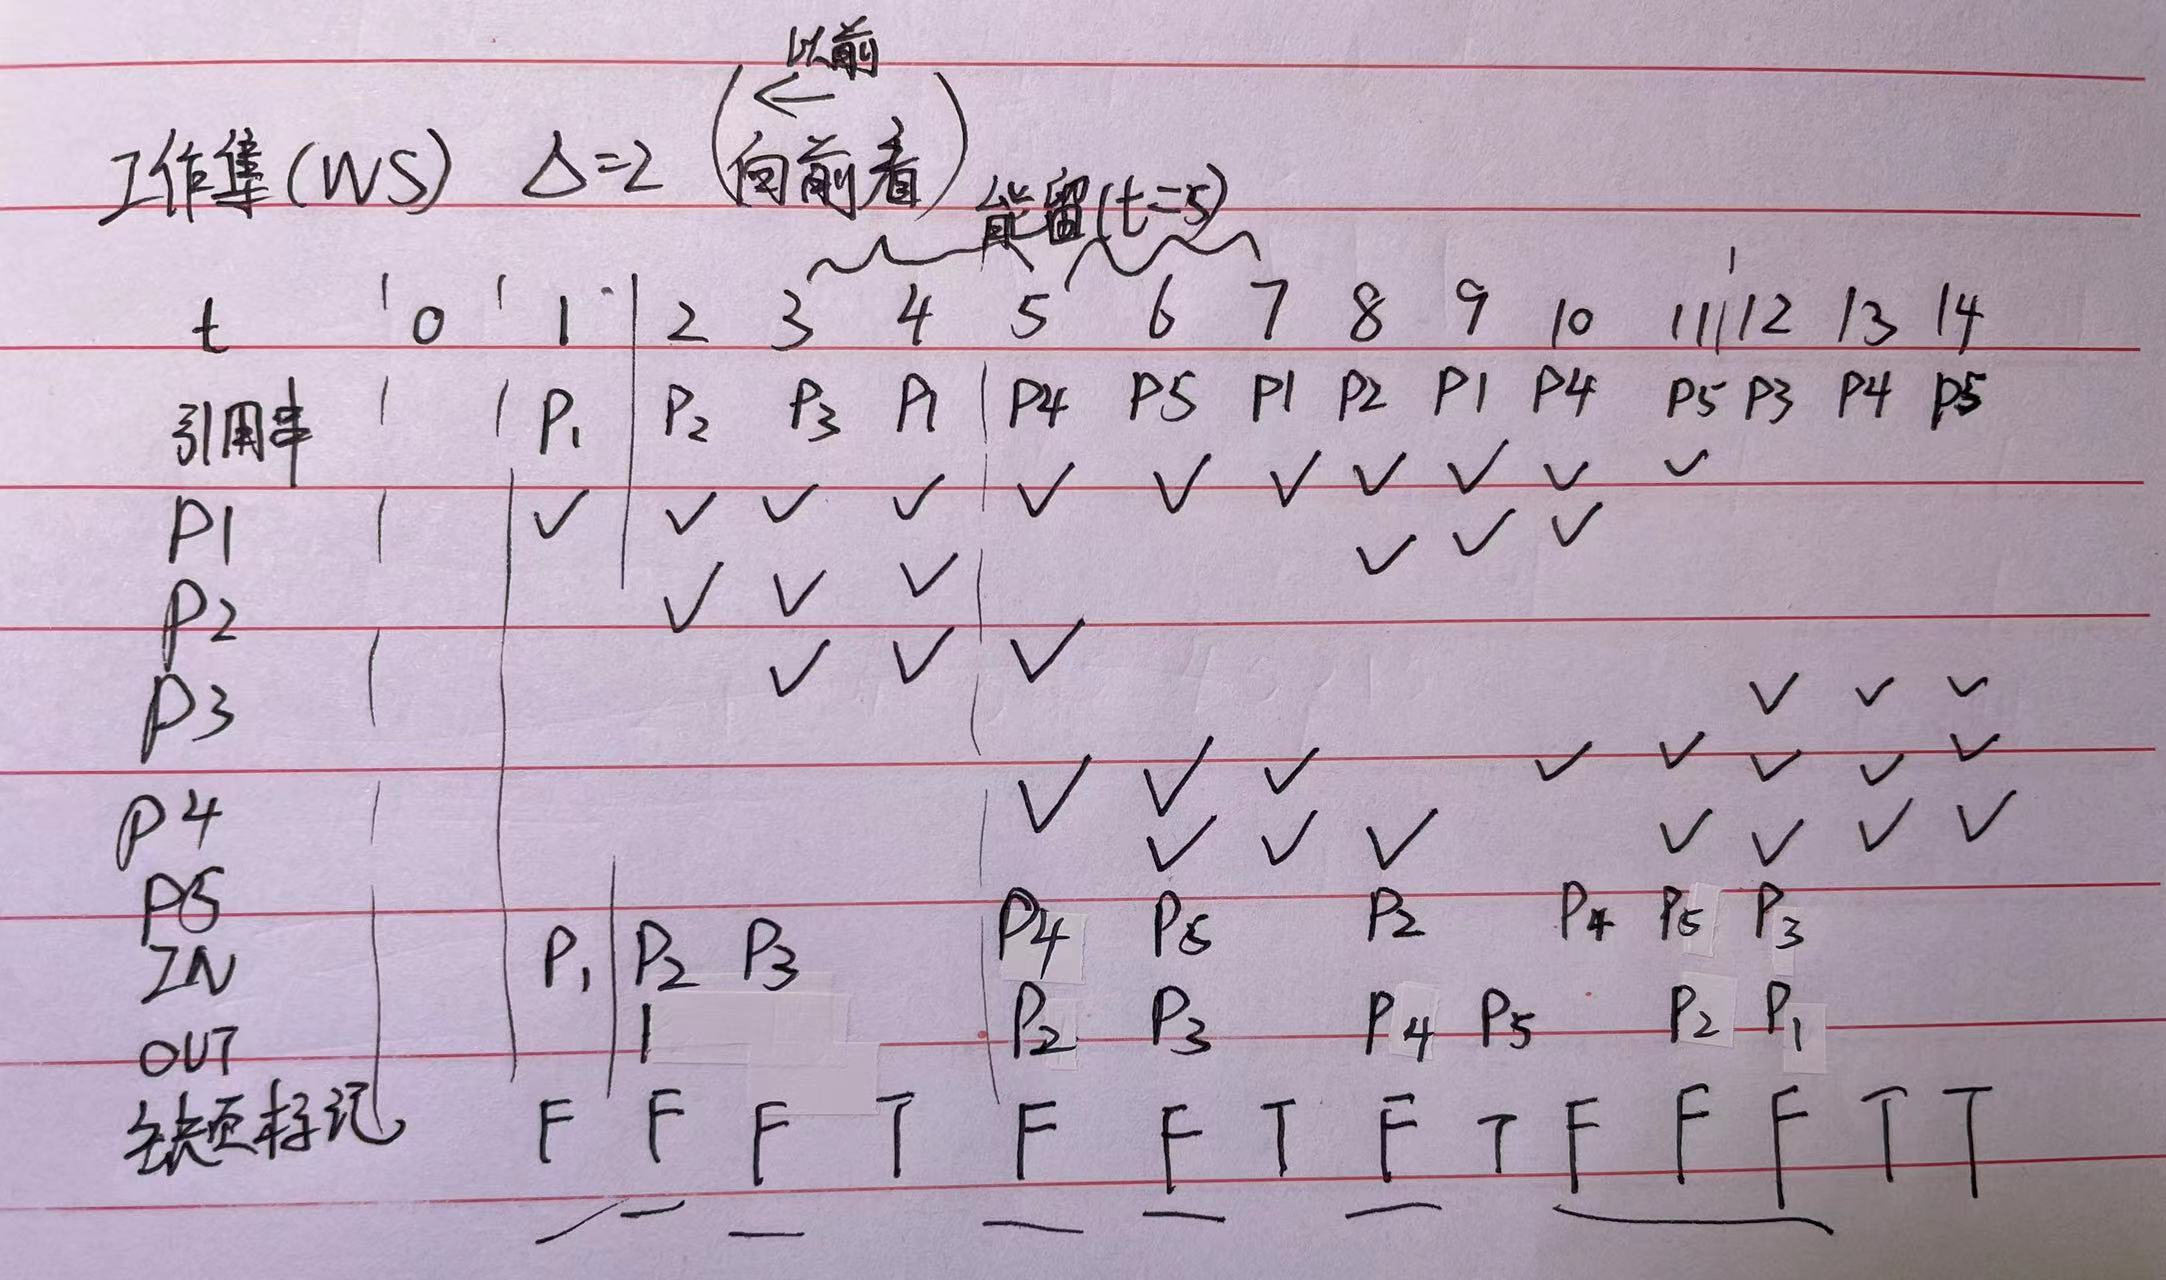 以前
←
工作集(WS) Δ=2 (向前看)
能留(t=5)
t 0 1 2 3 4 5 6 7 8 9 10 11 12 13 14
引用串 P1 P2 P3 P1 P4 P5 P1 P2 P1 P4 P5 P3 P4 P5
P1 ✓ ✓ ✓ ✓ ✓ ✓ ✓ ✓ ✓ ✓ ✓
P2 ✓ ✓ ✓ ✓ ✓ ✓
P3 ✓ ✓ ✓ ✓ ✓ ✓
P4 ✓ ✓ ✓ ✓ ✓ ✓ ✓ ✓
P5 ✓ ✓ ✓ ✓ ✓ ✓ ✓
IN P1 P2 P3 P4 P5 P2 P4 P5 P3
OUT P2 P3 P4 P5 P2 P1
缺页标记 F F F T F F T F T F F F T T